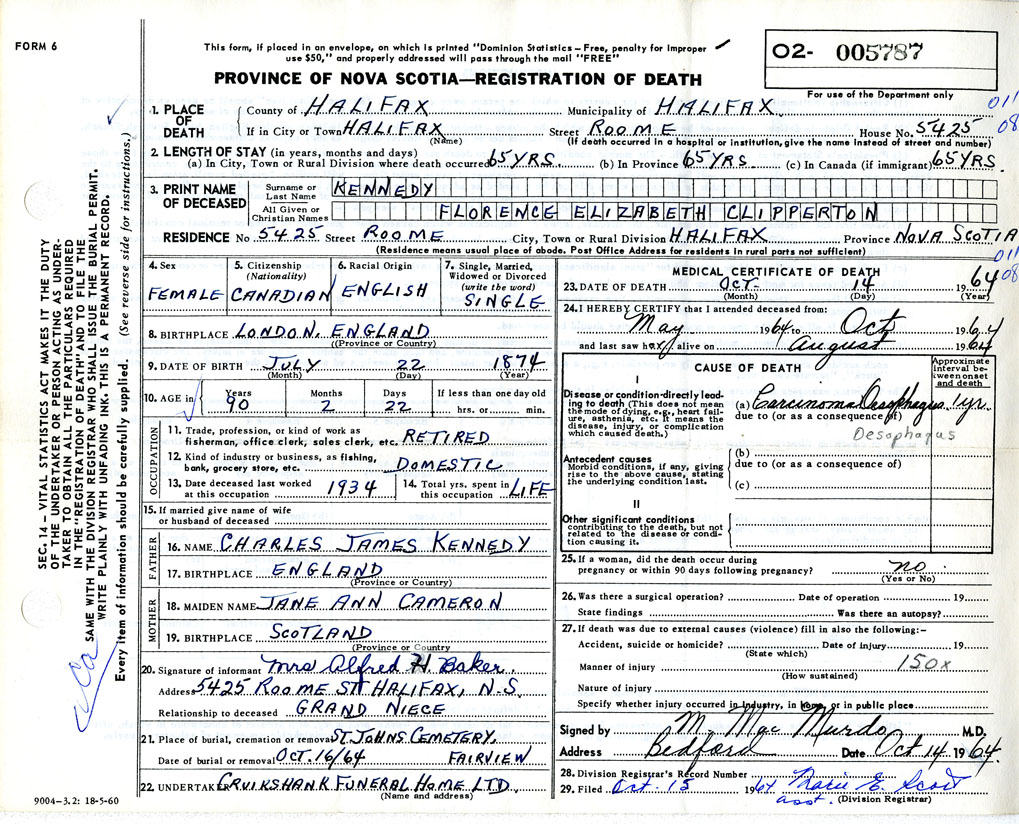 FORM 6
This form, if placed in an envelope, on which is printed "Dominion Statistics—Free, penalty for improper
use $50," and properly addressed will pass through the mail "FREE"
PROVINCE OF NOVA SCOTIA—REGISTRATION OF DEATH
02- 005787
For use of the Department only
011
08
1. PLACE OF DEATH
County of HALIFAX Municipality of HALIFAX
If in City or Town HALIFAX Street ROOME House No. 5425
(Name) (If death occurred in a hospital or institution, give name instead of street and number)
2. LENGTH OF STAY (in years, months and days)
(a) In City, Town or Rural Division where death occurred 65 YRS. (b) In Province 65 YRS. (c) In Canada (if immigrant) 65 YRS
3. PRINT NAME OF DECEASED
Surname or Last Name KENNEDY
All Given or Christian Names FLORENCE ELIZABETH CLIPPERTON
RESIDENCE No. 5425 Street ROOME City, Town or Rural Division HALIFAX Province NOVA SCOTIA
(Residence means usual place of abode. Post Office Address for residents in rural parts not sufficient)
011
08
4. Sex
FEMALE
5. Citizenship
(Nationality)
CANADIAN
6. Racial Origin
ENGLISH
7. Single, Married,
Widowed or Divorced
(write the word)
SINGLE
8. BIRTHPLACE LONDON, ENGLAND
((Province or Country)
9. DATE OF BIRTH JULY 22 1874
(Month) (Day) (Year)
10. AGE in
Years Months Days If less than one day old
90 2 22 hrs. or min.
OCCUPATION
11. Trade, profession, or kind of work as
fisherman, office clerk, sales clerk, etc. RETIRED
12. Kind of industry or business, as fishing,
bank, grocery store, etc. DOMESTIC
13. Date deceased last worked
at this occupation 1934
14. Total yrs. spent in
this occupation LIFE
15. If married give name of wife
or husband of deceased
FATHER
16. NAME CHARLES JAMES KENNEDY
17. BIRTHPLACE ENGLAND
(Province or Country)
MOTHER
18. MAIDEN NAME JANE ANN CAMERON
19. BIRTHPLACE SCOTLAND
(Province or Country
20. Signature of informant Mrs Alfred H Baker.
Address 5425 ROOME ST HALIFAX, N.S.
Relationship to deceased GRAND NIECE
21. Place of burial, cremation or removal ST. JOHNS CEMETERY,
Date of burial or removal OCT. 16/64 FAIRVIEW
22. UNDERTAKER CRUIKSHANK FUNERAL HOME LTD.
(Name and address)
MEDICAL CERTIFICATE OF DEATH
23. DATE OF DEATH OCT 14 1964
(Month) (Day) (Year)
24. I HEREBY CERTIFY that I attended deceased from:
May 1964 to Oct 1964
and last saw her alive on August 1964
CAUSE OF DEATH
Approximate
interval be-
tween onset
and death
I
Disease or condition directly lead-
ing to death (This does not mean
the mode of dying, e.g., heart fail-
ure, asthenia, etc. It means the
disease, injury, or complication
which caused death.)
(a) Carcinoma Oesophagus 1 yr.
due to (or as a consequence of)
Oesophagus
Antecedent causes
Morbid conditions, if any, giving
rise to the above cause, stating
the underlying condition last.
(b)
due to (or as a consequence of)
(c)
II
Other significant conditions
contributing to the death, but not
related to the disease or condi-
tion causing it.
25. If a woman, did the death occur during
pregnancy or within 90 days following pregnancy? no
(Yes or No)
26. Was there a surgical operation? Date of operation 19
State findings Was there an autopsy?
27. If death was due to external causes (violence) fill in also the following:—
Accident, suicide or homicide? Date of injury 19
(State which)
150X
Manner of injury
(How sustained)
Nature of injury
Specify whether injury occurred in industry, in home, or in public place
Signed by M. MacMurdo M.D.
Address Bedford Date Oct 14 1964
28. Division Registrar's Record Number
29. Filed Oct. 15 1964 Marie E. Scott
asst. (Division Registrar)
SEC. 14 — VITAL STATISTICS ACT MAKES IT THE DUTY
OF THE UNDERTAKER OR PERSON ACTING AS UNDER-
TAKER TO OBTAIN ALL THE PARTICULARS REQUIRED
IN THE "REGISTRATION OF DEATH" AND TO FILE THE
SAME WITH THE DIVISION REGISTRAR WHO SHALL ISSUE THE BURIAL PERMIT.
WRITE PLAINLY WITH UNFADING INK. THIS IS A PERMANENT RECORD.
Every item of information should be carefully supplied. (See reverse side for instructions.)
9004-3.2: 18-5-60